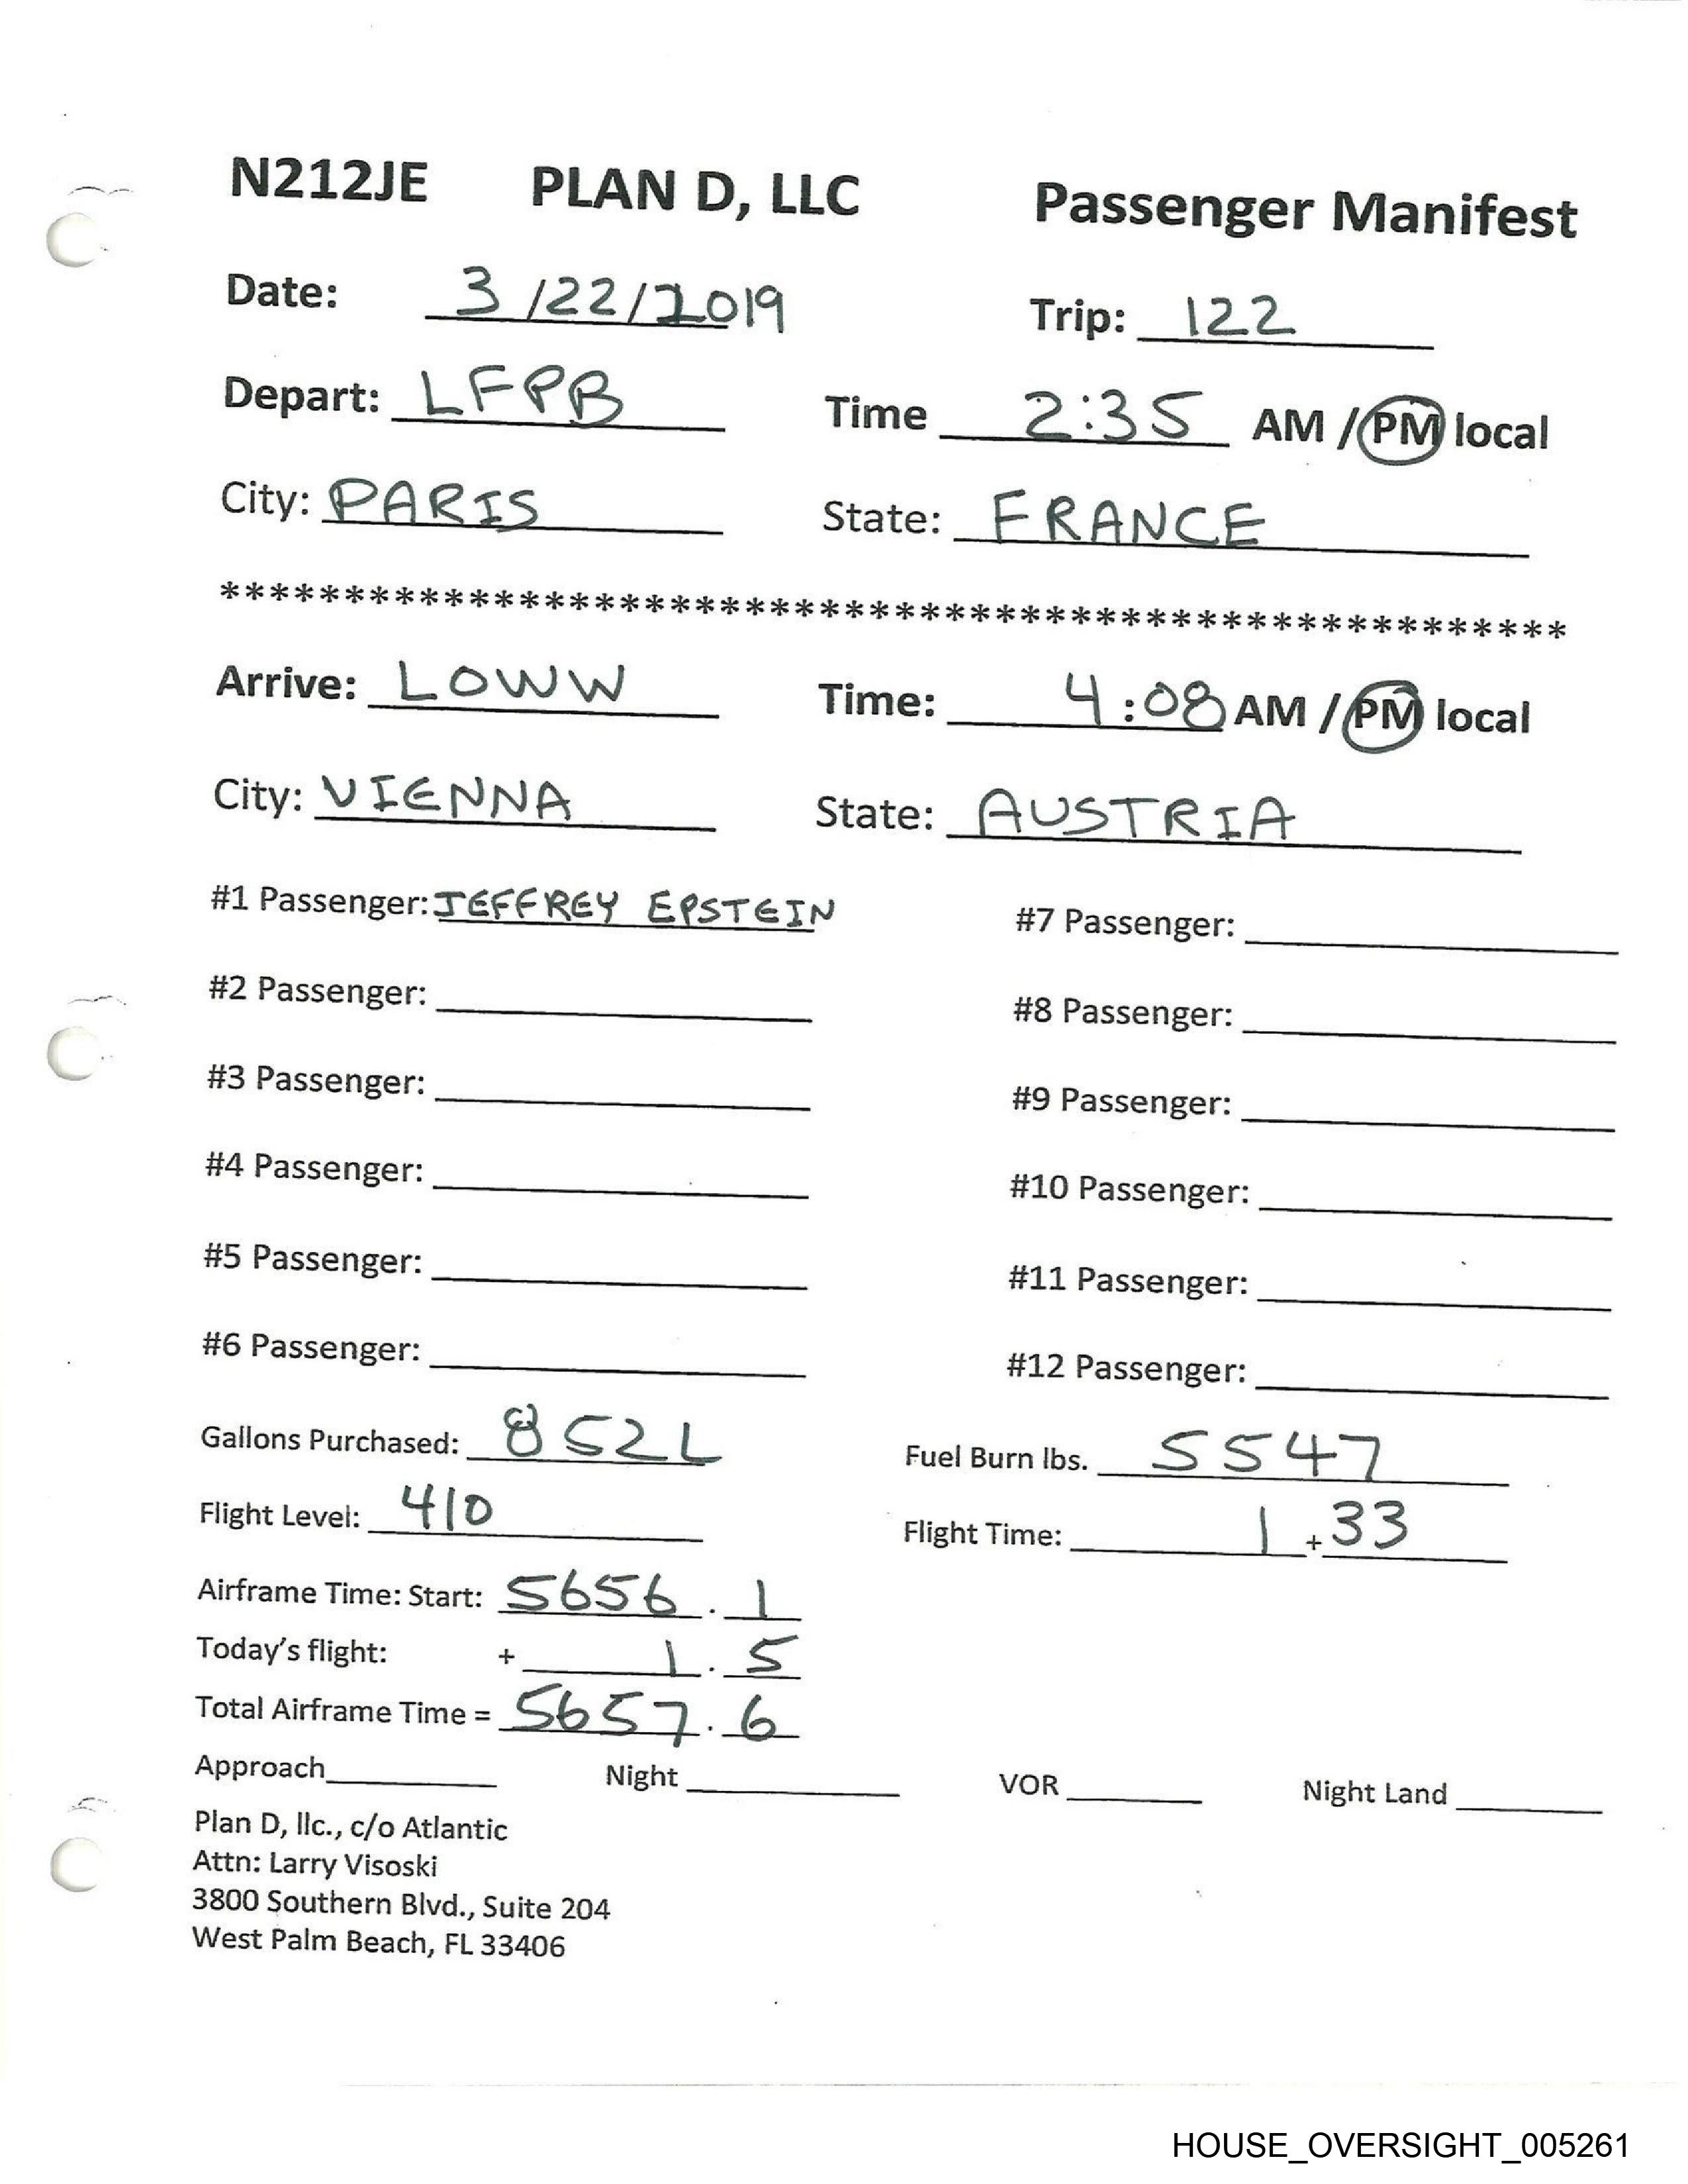 N212JE PLAN D, LLC Passenger Manifest
Date: 3/22/2019 Trip: 122
Depart: LFPB Time 2:35 AM / PM local
City: PARIS State: FRANCE
******************************************************
Arrive: LOWW Time: 4:08 AM / PM local
City: VIENNA State: AUSTRIA
#1 Passenger: JEFFREY EPSTEIN #7 Passenger:
#2 Passenger: #8 Passenger:
#3 Passenger: #9 Passenger:
#4 Passenger: #10 Passenger:
#5 Passenger: #11 Passenger:
#6 Passenger: #12 Passenger:
Gallons Purchased: 852L Fuel Burn lbs. 5547
Flight Level: 410 Flight Time: 1 + 33
Airframe Time: Start: 5656.1
Today's flight: + 1.5
Total Airframe Time = 5657.6
Approach Night VOR Night Land
Plan D, llc., c/o Atlantic
Attn: Larry Visoski
3800 Southern Blvd., Suite 204
West Palm Beach, FL 33406
HOUSE_OVERSIGHT_005261